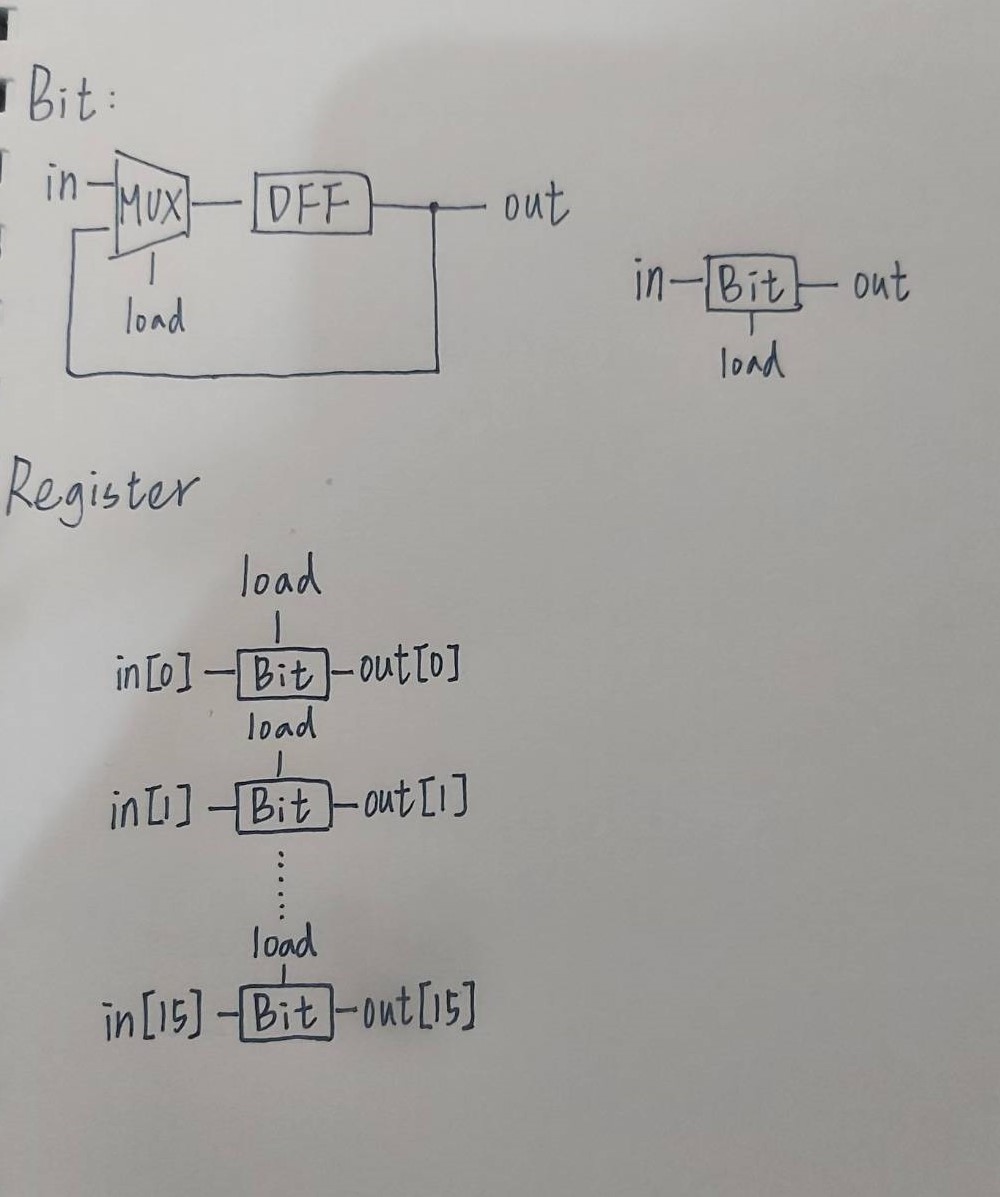 Bit:
in MUX DFF out
load
in Bit out
load
Register
load
in[0] Bit out[0]
load
in[1] Bit out[1]
......
load
in[15] Bit out[15]